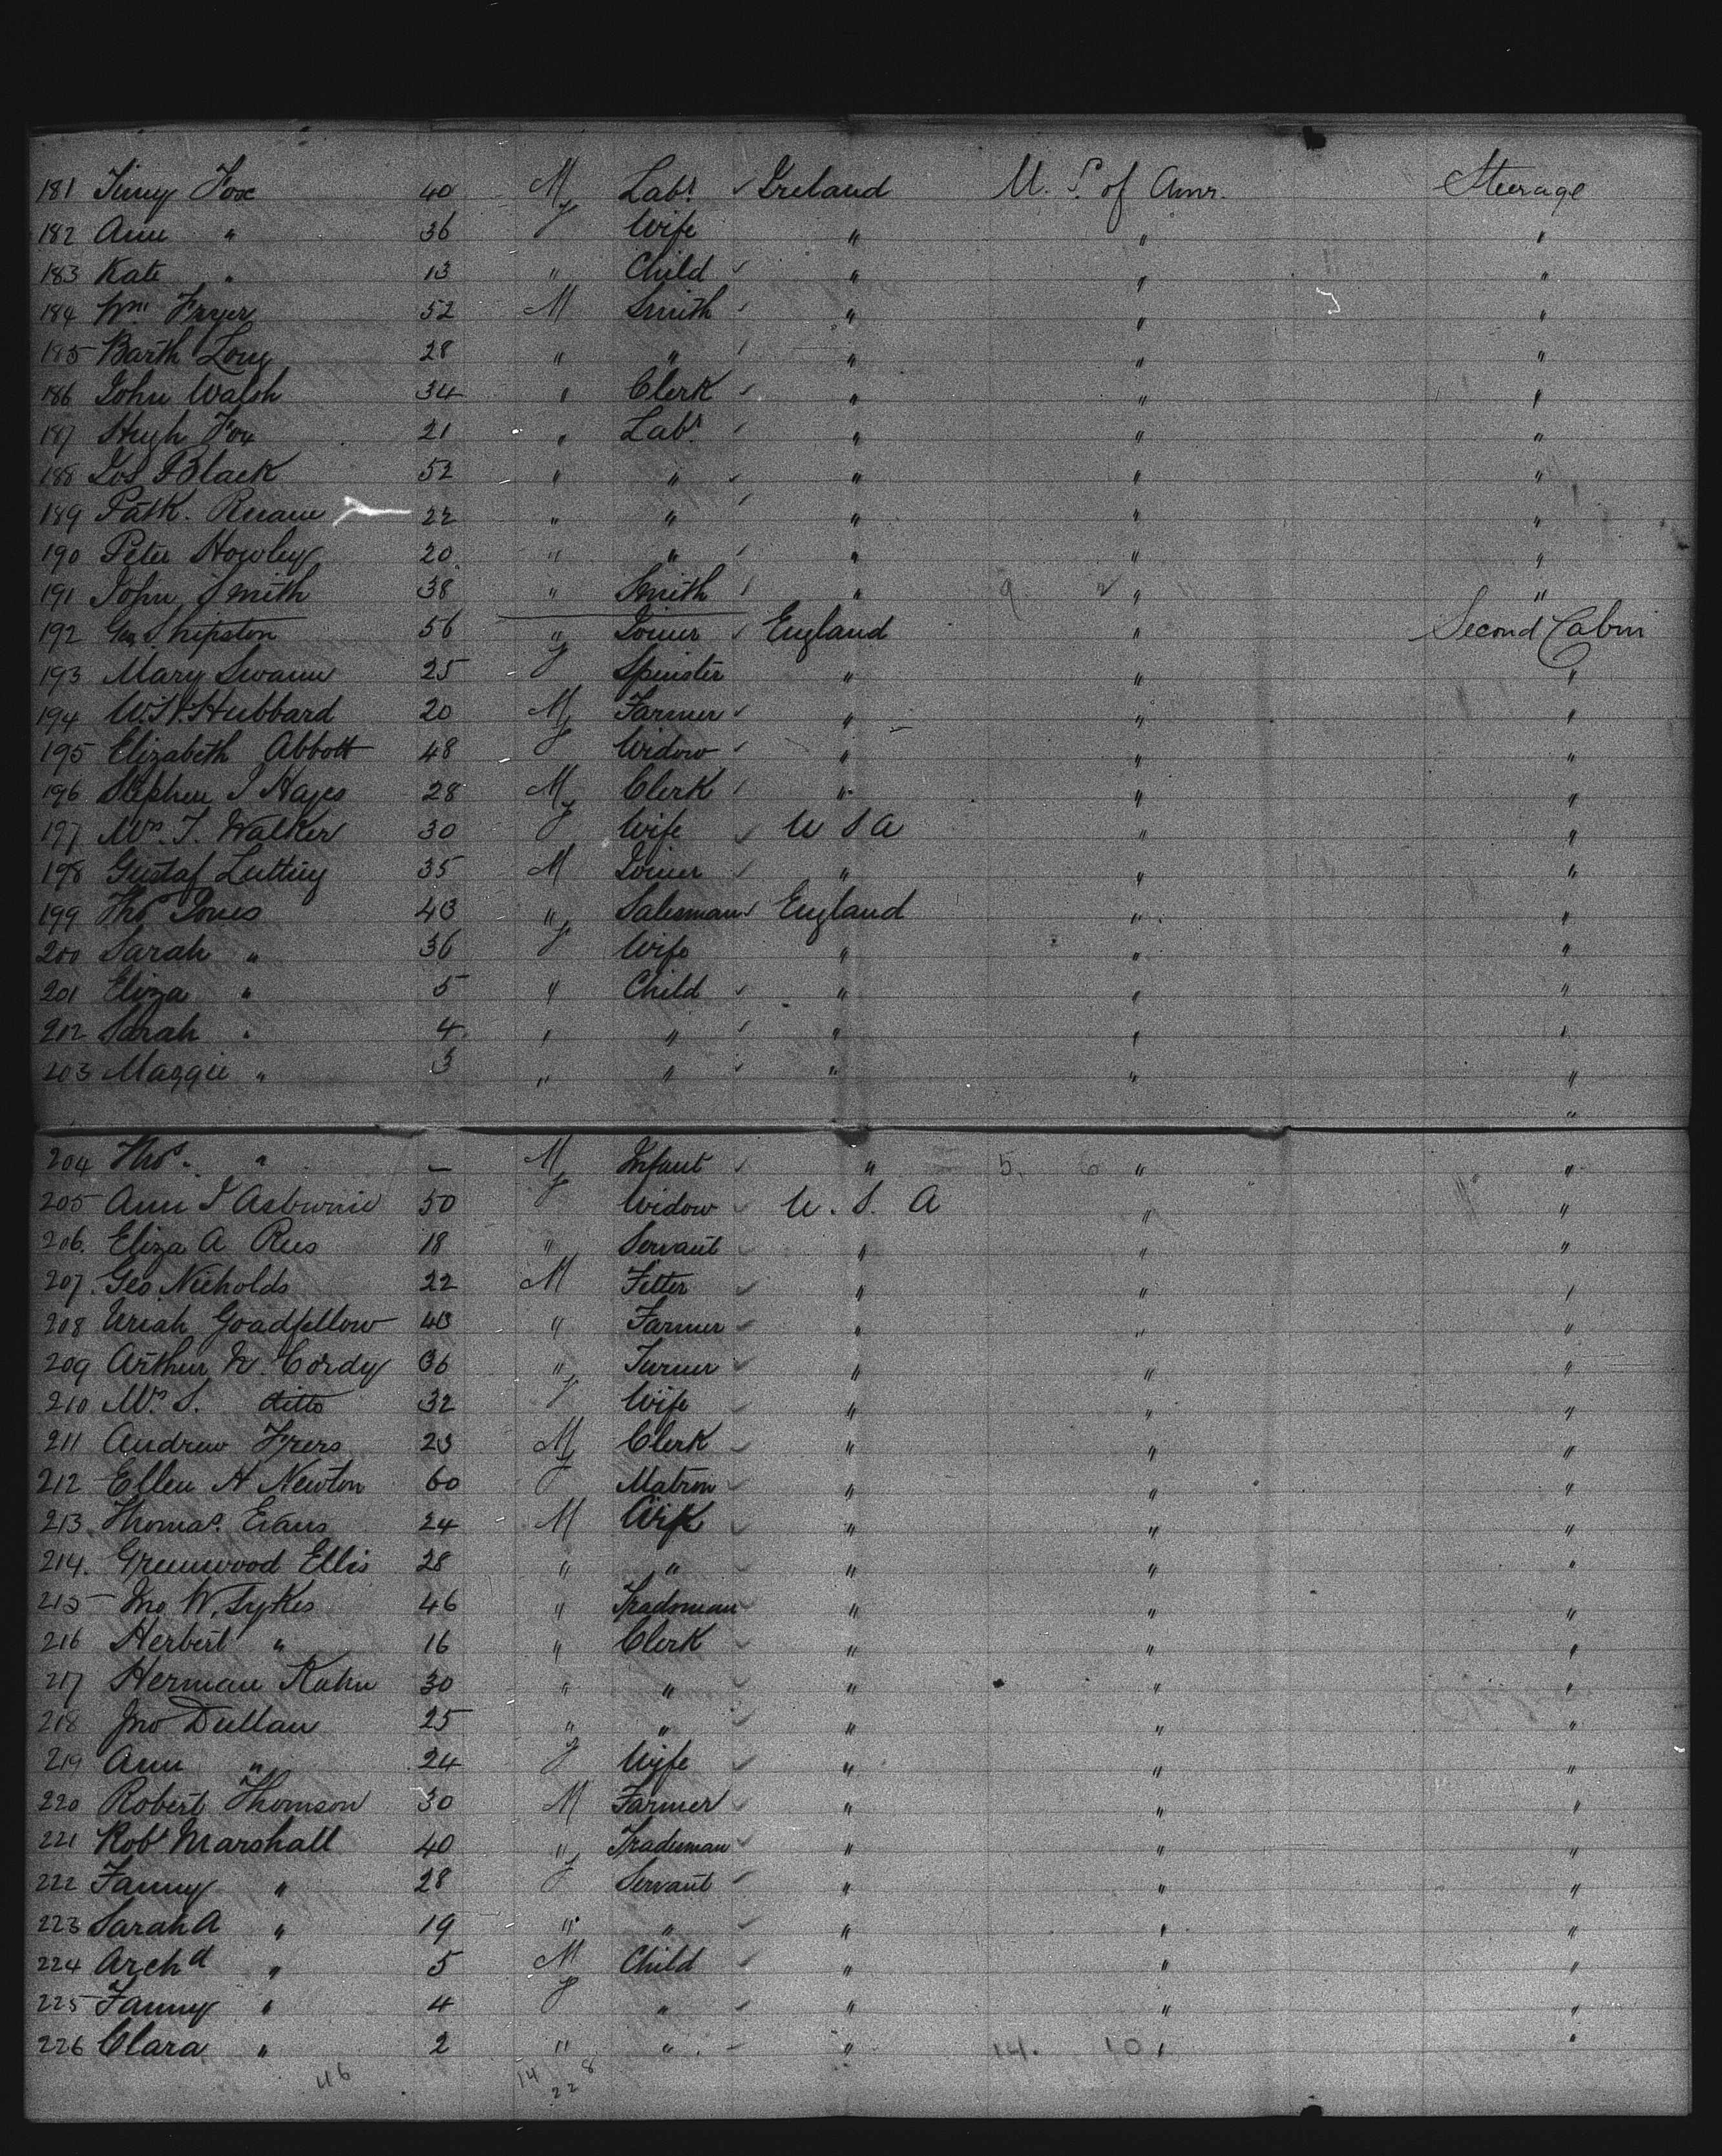 181 Timy Fox 40 M Labr ✓ Ireland U. S. of Amr. Steerage
182 Ann " 36 F Wife " " "
183 Kate " 13 " Child ✓ " " "
184 Wm Fryer 52 M Smith ✓ " " "
185 Barth Long 28 " " ✓ " " "
186 John Walsh 34 " Clerk ✓ " " "
187 Hugh Fox 21 " Labr ✓ " " "
188 Jos Black 52 " " ✓ " " "
189 Patk. Ruane 22 " " ✓ " " "
190 Peter Howley 20 " " ✓ " " "
191 John Smith 38 " Smith ✓ " 9 2 " "
192 Geo Shipston 56 " Joiner ✓ England " Second Cabin
193 Mary Swann 25 F Spinster " " "
194 W. H. Hubbard 20 M Farmer ✓ " " "
195 Elizabeth Abbott 48 F Widow ✓ " " "
196 Stephen J Hayes 28 M Clerk ✓ " " "
197 Mrs. T. Walker 30 F Wife ✓ U S A " "
198 Gustaf Lutting 35 M Joiner ✓ " " "
199 Thos Jones 43 " Salesman ✓ England " "
200 Sarah " 36 F Wife " " "
201 Eliza " 5 " Child ✓ " " "
202 Sarah " 4 " " ✓ " " "
203 Maggie " 3 " " ✓ " " "
"
204 Thos. " – M Infant ✓ " 5. 6 " "
205 Ann J 50 F Widow ✓ U. S. A " "
206. Eliza A Rees 18 " Servant ✓ " " "
207. Geo. Nicholds 22 M Fitter ✓ " " "
208 Uriah Goadfellow 43 " Farmer ✓ " " "
209 Arthur W. Cordy 36 " Turner ✓ " " "
210 Mrs S. ditto 32 F Wife ✓ " " "
211 Andrew Frers 23 M Clerk ✓ " " "
212 Ellen H Newton 60 F Matron ✓ " " "
213. Thomas. Evans 24 M ✓ " " "
214. Greenwood Ellis 28 " " ✓ " " "
215 Jno W. Sykes 46 " Tradsman ✓ " " "
216 Herbert " 16 " Clerk ✓ " " "
217 Herman Kahn 30 " " ✓ " " "
218 Jno Dullan 25 " " ✓ " " "
219 Ann " 24 F Wife ✓ " " "
220 Robert Thomson 30 M Farmer ✓ " " "
221 Robt Marshall 40 " Tradesman ✓ " " "
222 Fanny " 28 F Servant ✓ " " "
223 Sarah A " 19 " " ✓ " " "
224 Archd " 5 M Child ✓ " " "
225 Fanny " 4 F " ✓ " " "
226 Clara " 2 " " ✓ " 14. 10 " "
46 14 8
22